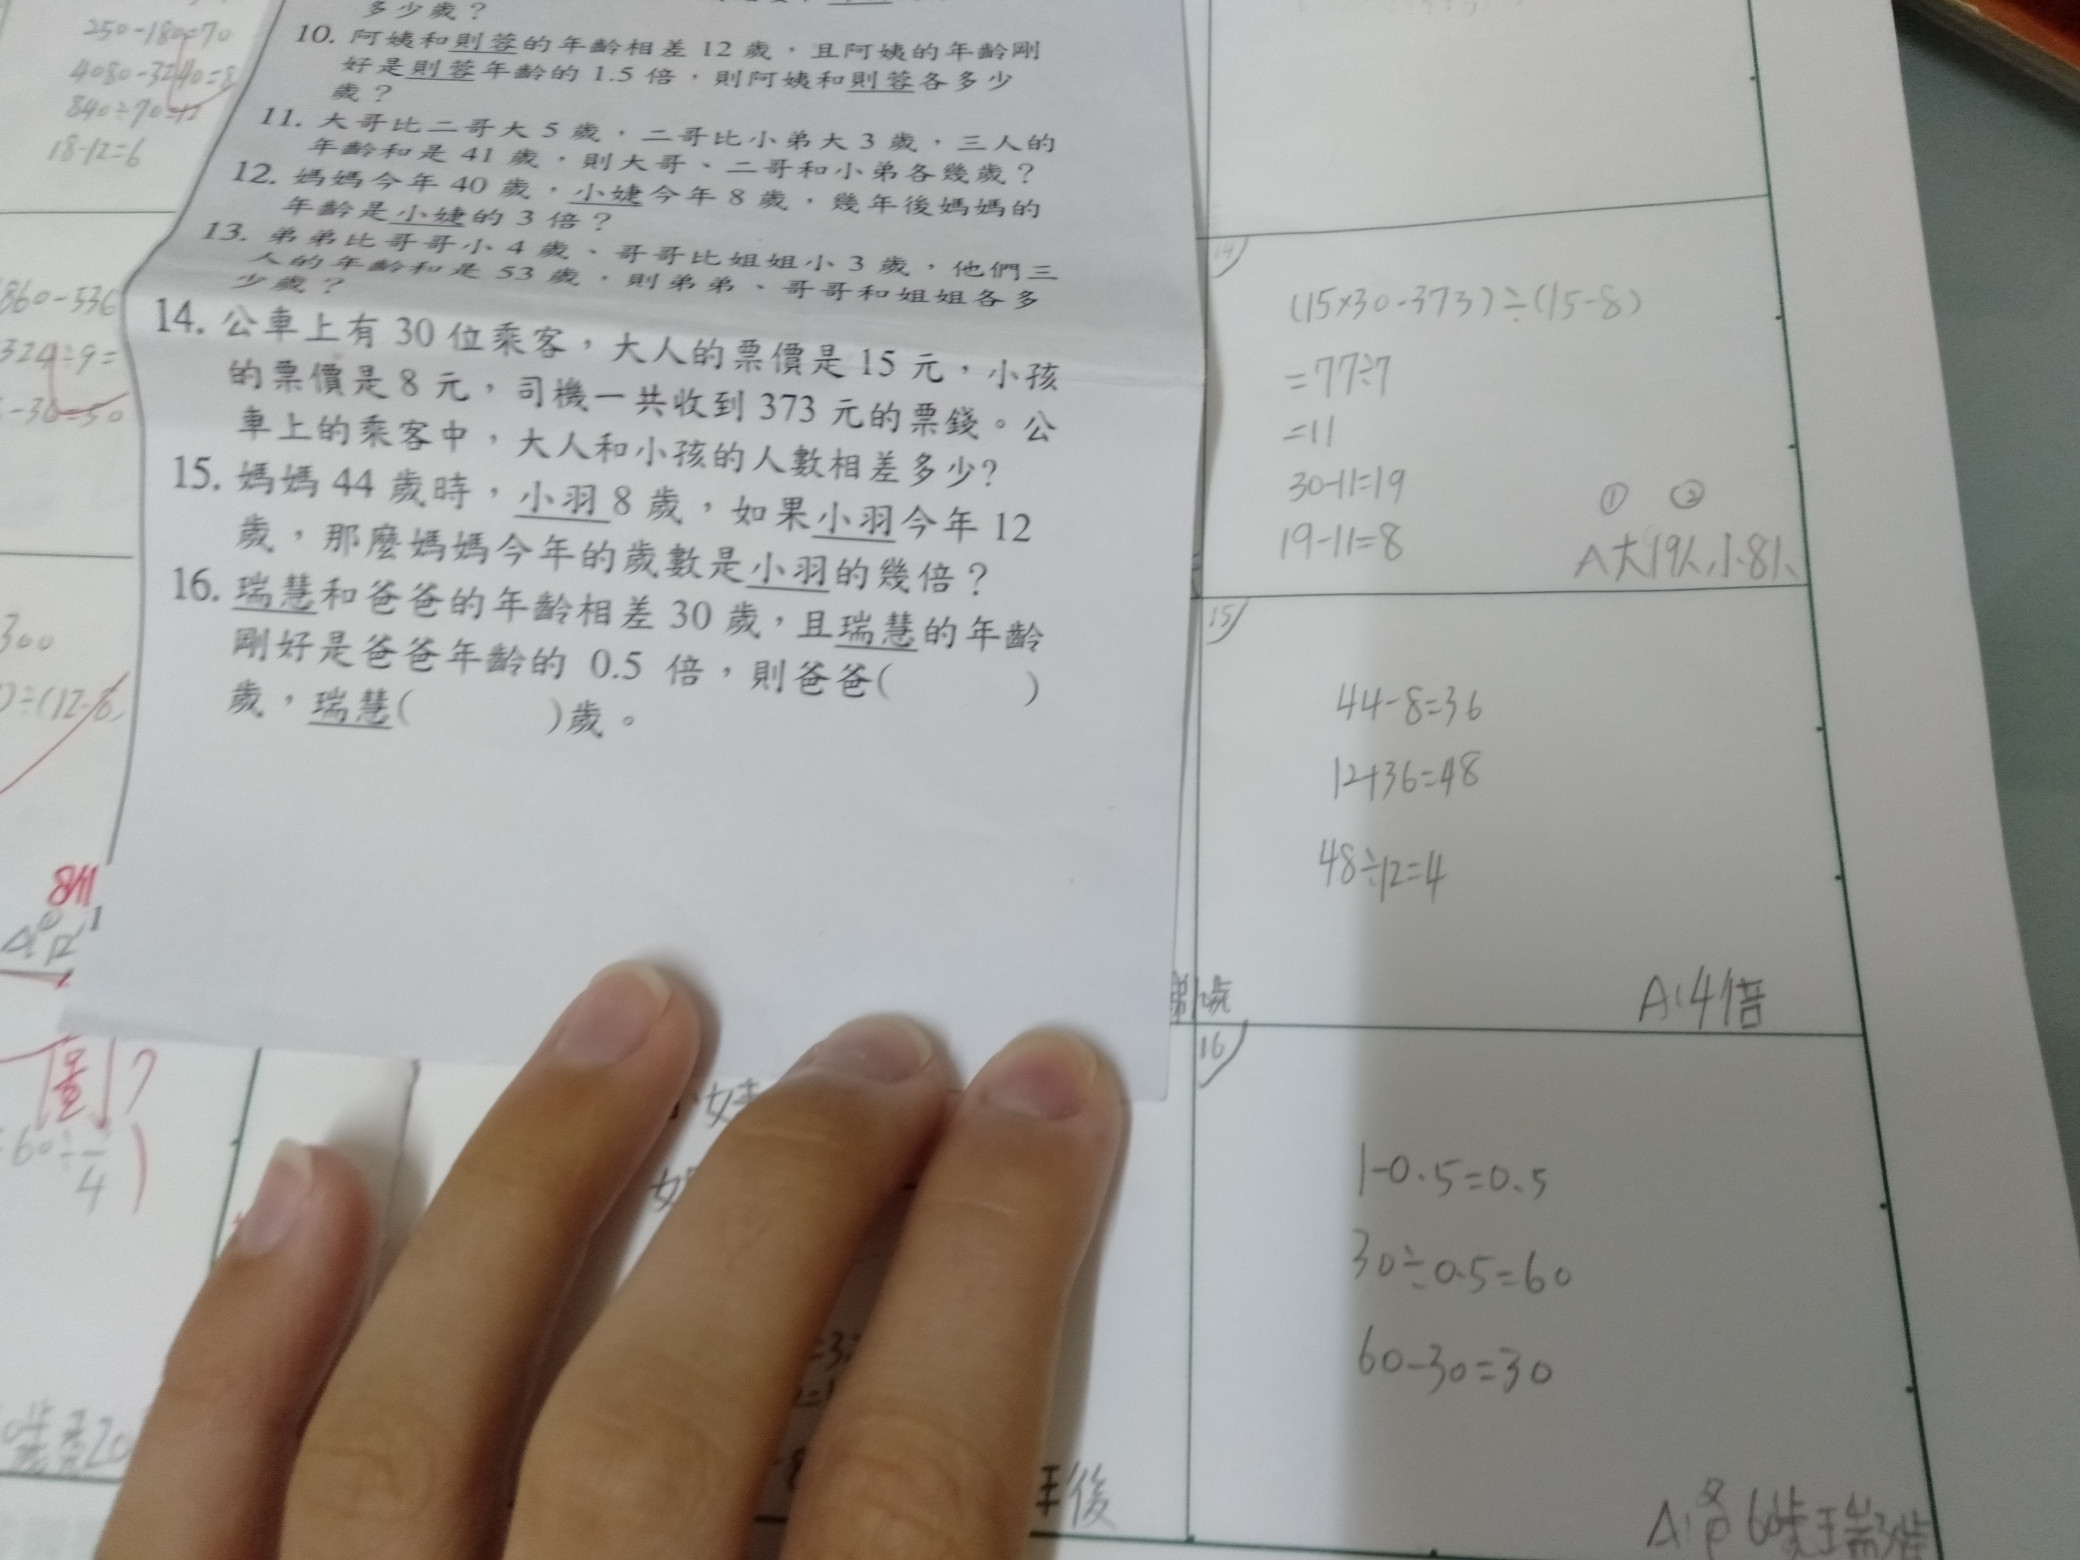 250-180=70
840÷70=12
18-12=6
860-536
324÷9=
300
多少歲？
10. 阿姨和則蓉的年齡相差 12 歲，且阿姨的年齡剛
好是則蓉年齡的 1.5 倍，則阿姨和則蓉各多少
歲？
11. 大哥比二哥大 5 歲，二哥比小弟大 3 歲，三人的
年齡和是 41 歲，則大哥、二哥和小弟各幾歲？
12. 媽媽今年 40 歲，小婕今年 8 歲，幾年後媽媽的
年齡是小婕的 3 倍？
13. 弟弟比哥哥小 4 歲、哥哥比姐姐小 3 歲，他們三
人的年齡和是 53 歲，則弟弟、哥哥和姐姐各多
少歲？
14. 公車上有 30 位乘客，大人的票價是 15 元，小孩
的票價是 8 元，司機一共收到 373 元的票錢。公
車上的乘客中，大人和小孩的人數相差多少？
15. 媽媽 44 歲時，小羽 8 歲，如果小羽今年 12
歲，那麼媽媽今年的歲數是小羽的幾倍？
16. 瑞慧和爸爸的年齡相差 30 歲，且瑞慧的年齡
剛好是爸爸年齡的 0.5 倍，則爸爸( )
歲，瑞慧( )歲。
14
(15×30-373)÷(15-8)
=77÷7
=11
30-11=19
19-11=8
① ②
A大19人小8人
15
44-8=36
12+36=48
48÷12=4
A:4倍
16
1-0.5=0.5
30÷0.5=60
60-30=30
年後